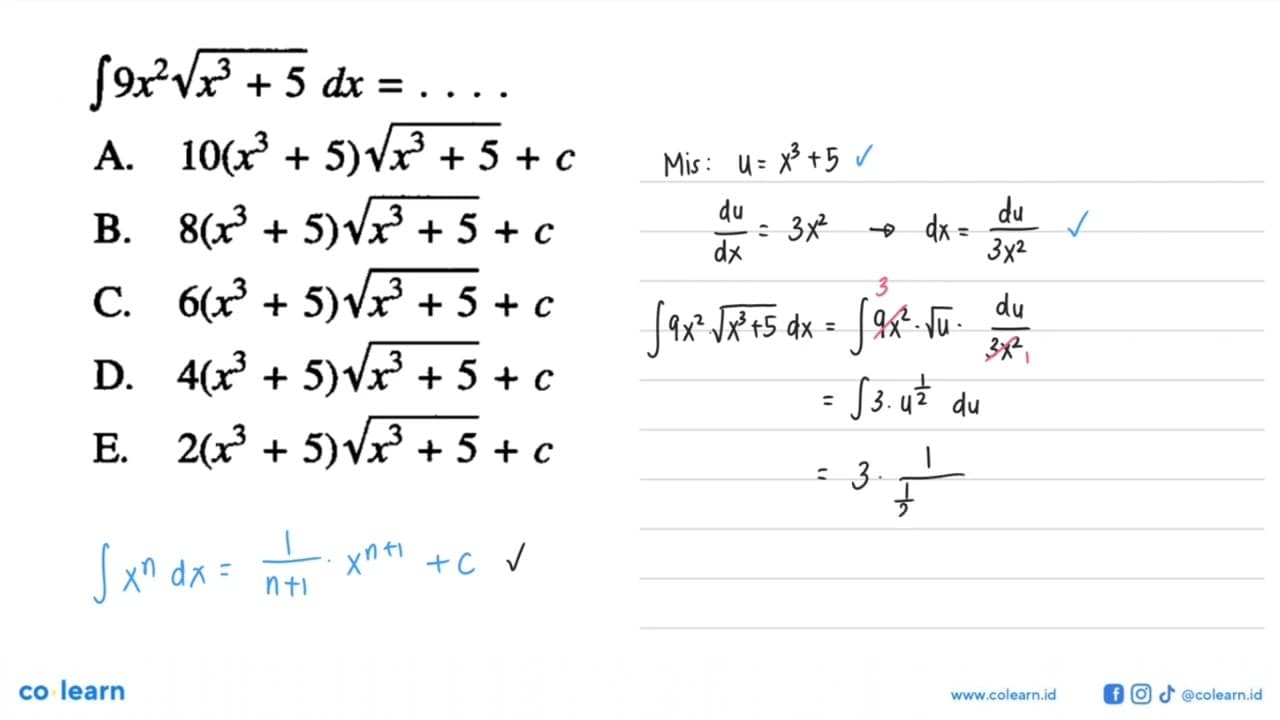 ∫9x²√(x³ + 5) dx = . . . .
A. 10(x³ + 5)√(x³ + 5) + c
B. 8(x³ + 5)√(x³ + 5) + c
C. 6(x³ + 5)√(x³ + 5) + c
D. 4(x³ + 5)√(x³ + 5) + c
E. 2(x³ + 5)√(x³ + 5) + c
∫ xⁿ dx = 1/(n+1) · xⁿ⁺¹ + c ✓
Mis: u = x³ + 5 ✓
du/dx = 3x² → dx = du/3x² ✓
∫ 9x² · √(x³+5) dx = ∫ 9x² · √u · du/3x²
3
1
= ∫ 3 · u^(1/2) du
= 3 · 1/(1/2)
co learn
www.colearn.id
@colearn.id